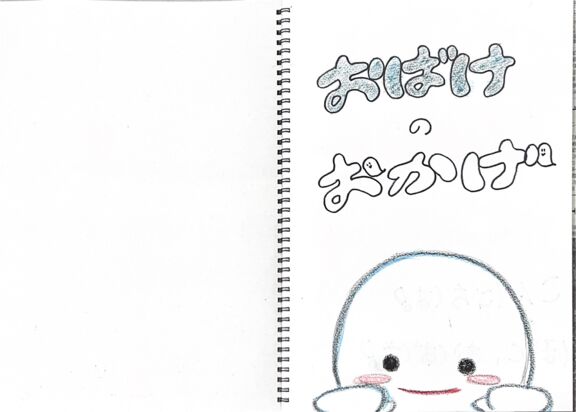 おばけ
の
おかげ